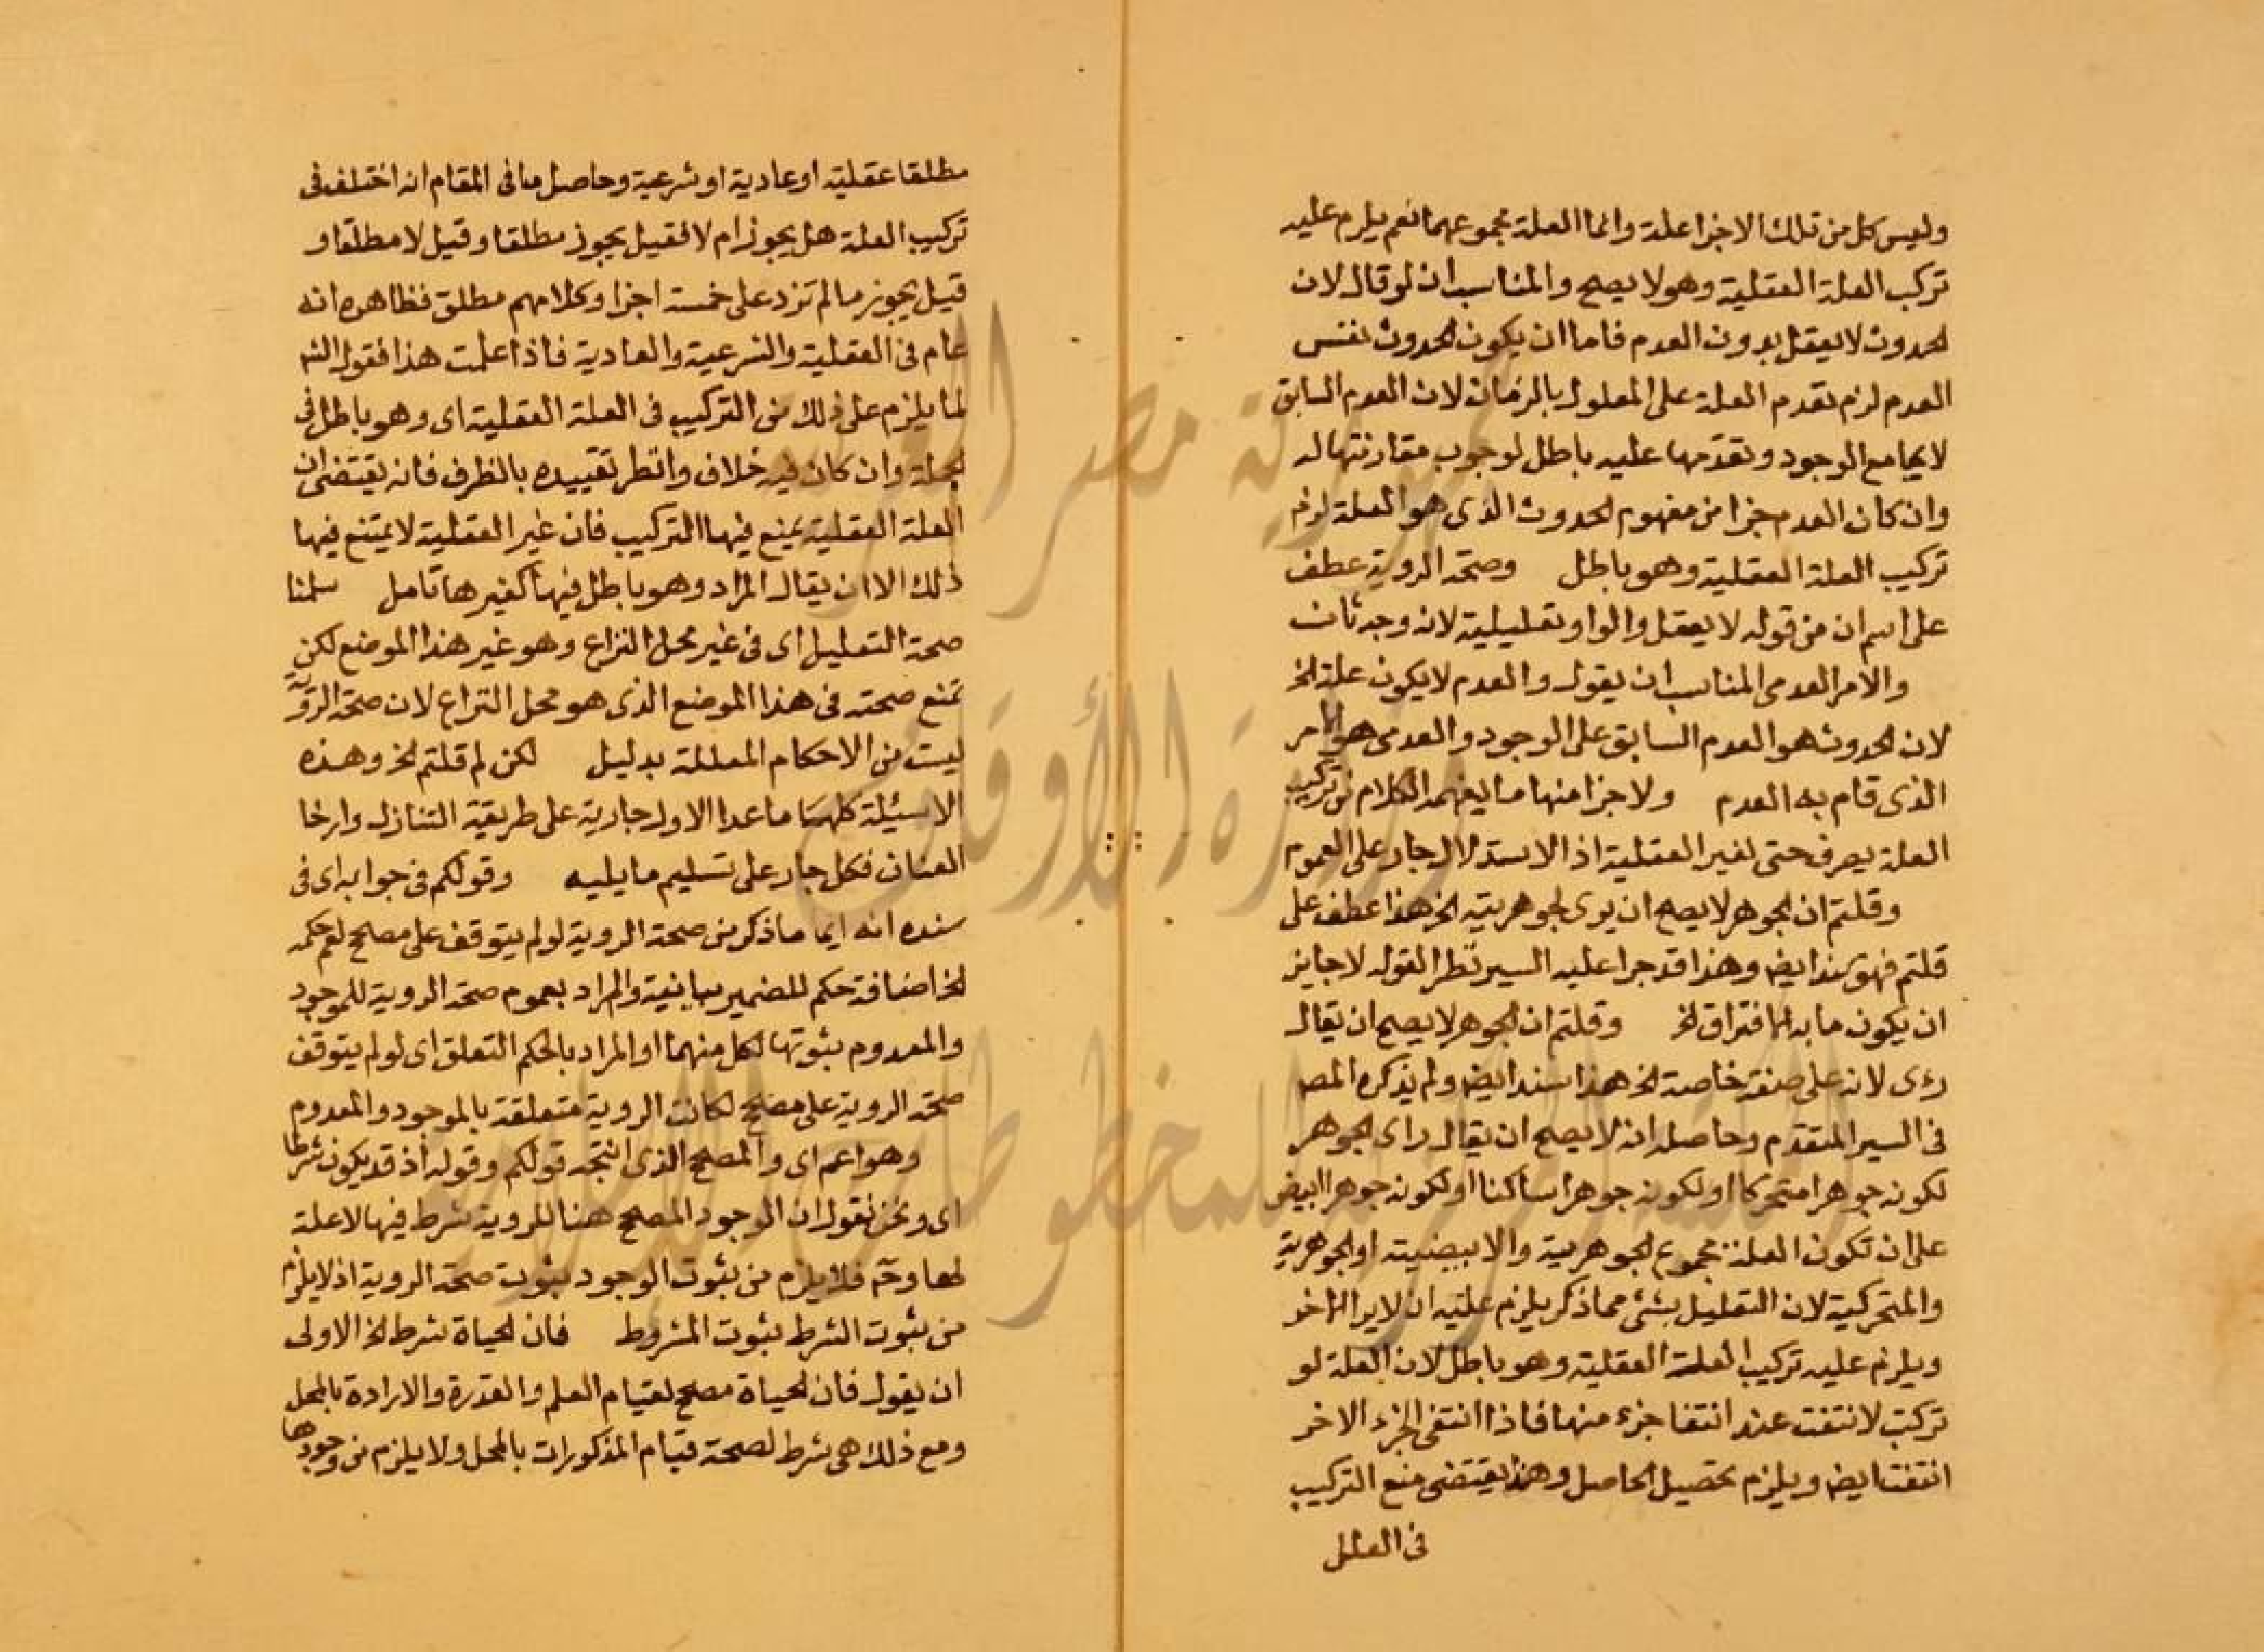 وليس كل من تلك الاجزا علة وانما العلة مجموعهما نعم يلزم عليه
تركب العلة العقلية وهو لا يصح والمناسب ان لو قال لان
الحدوث لا يعقل بدون العدم فاما ان يكون الحدوث نفس
العدم لزم تقدم العلة على المعلول بالزمان لان العدم السابق
لا يجامع الوجود وتقدمها عليه باطل لوجوب مقارنتها له
وان كان العدم جزا من مفهوم الحدوث الذى هو العلة لزم
تركيب العلة العقلية وهو باطل وصحة الروية عطف
على اسم ان من قوله لا يعقل والواو تعليلية لانه وجه ثان
والامر العدمى المناسب ان يقول والعدم لا يكون علة الخ
لان الحدوث هو العدم السابق على الوجود والعدمى هو الامر
الذى قام به العدم ولا جزا منها ما يفهمه الكلام من تركيب
العلة يصرف حتى لغير العقلية اذ الاستدلال جار على العموم
وقلتم ان الجوهر لا يصح ان يرى لجوهريته الخ هذا عطف على
قلتم فهو سند ايضا وهذا قد جرا عليه السير نظرا لقوله لا جايز
ان يكون ما به الافتراق الخ وقلتم ان الجوهر لا يصح ان يقال
رءى لانه على صفة خاصة الخ هذا سند ايضا ولم يذكره المص
فى السير المتقدم وحاصله انه لا يصح ان يقال راى الجوهر
لكونه جوهرا متحركا او لكونه جوهرا ساكنا او لكونه جوهرا ابيض
على ان تكون العلة مجموع الجوهرية والابيضية او الجوهرية
والمتحركية لان التعليل بشئ مما ذكر يلزم عليه ان لا يرا الاخر
ويلزم عليه تركيب العلة العقلية وهو باطل لان العلة لو
تركبت لانتفت عند انتفا جزء منها فاذا انتفى الجزء الاخر
انتفت ايضا ويلزم تحصيل الحاصل وهذا يقتضى منع التركيب
فى العلل
مطلقا عقلية او عادية او شرعية وحاصل ما فى المقام انه اختلف فى
تركيب العلة هل يجوز ام لا فقيل يجوز مطلقا وقيل لا مطلقا و
قيل يجوز ما لم تزد على خمسة اجزا وكلامهم مطلق فظاهره انه
عام فى العقلية والشرعية والعادية فاذا علمت هذا فقول الش
لما يلزم على ذلك من التركيب فى العلة العقلية اى وهو باطل فى
الجملة وان كان فيه خلاف وانظر تقييده بالظرف فانه يقتضى ان
العلة العقلية يمنع فيها التركيب فان غير العقلية لا يمتنع فيها
ذلك الا ان يقال المراد وهو باطل فيها كغيرها تامل سلمنا
صحة التعليل اى فى غير محل النزاع وهو غير هذا الموضع لكن
نمنع صحته فى هذا الموضع الذى هو محل النزاع لان صحة الروية
ليست من الاحكام المعللة بدليل لكن لم قلتم الخ وهذه
الاسئلة كلها ما عدا الاول جارية على طريقة التنازل وارخا
العنان فكل جار على تسليم ما يليه وقولكم فى جوابه اى فى
سنده انه ايما ما ذكر من صحة الروية لو لم يتوقف على مصحح لعم حكمه
الخ اضافة حكم للضمير بيانية والمراد بعموم صحة الروية للموجود
والمعدوم ثبوتها لكل منهما او المراد بالحكم التعلق اى لو لم يتوقف
صحة الروية على مصحح لكانت الروية متعلقة بالموجود والمعدوم
وهو اعم اى والمصحح الذى انتجه قولكم وقوله اذ قد يكون شرطا
اى ونحن نقول ان الوجود المصحح هنا للروية شرط فيها لا علة
لها وح فلا يلزم من ثبوت الوجود ثبوت صحة الروية اذ لا يلزم
من ثبوت الشرط ثبوت المشروط فان الحياة شرط الخ الاولى
ان يقول فان الحياة مصحح لقيام العلم والقدرة والارادة بالمحل
ومع ذلك هى شرط لصحة قيام المذكورات بالمحل ولا يلزم من وجودها
جمهورية مصر العربية
وزارة الأوقاف